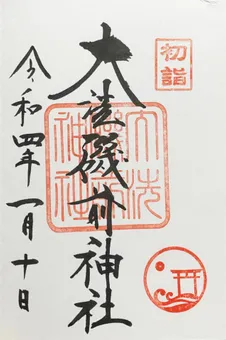 初詣
大洗磯前神社
令和四年一月十日
大洗
磯前
神社